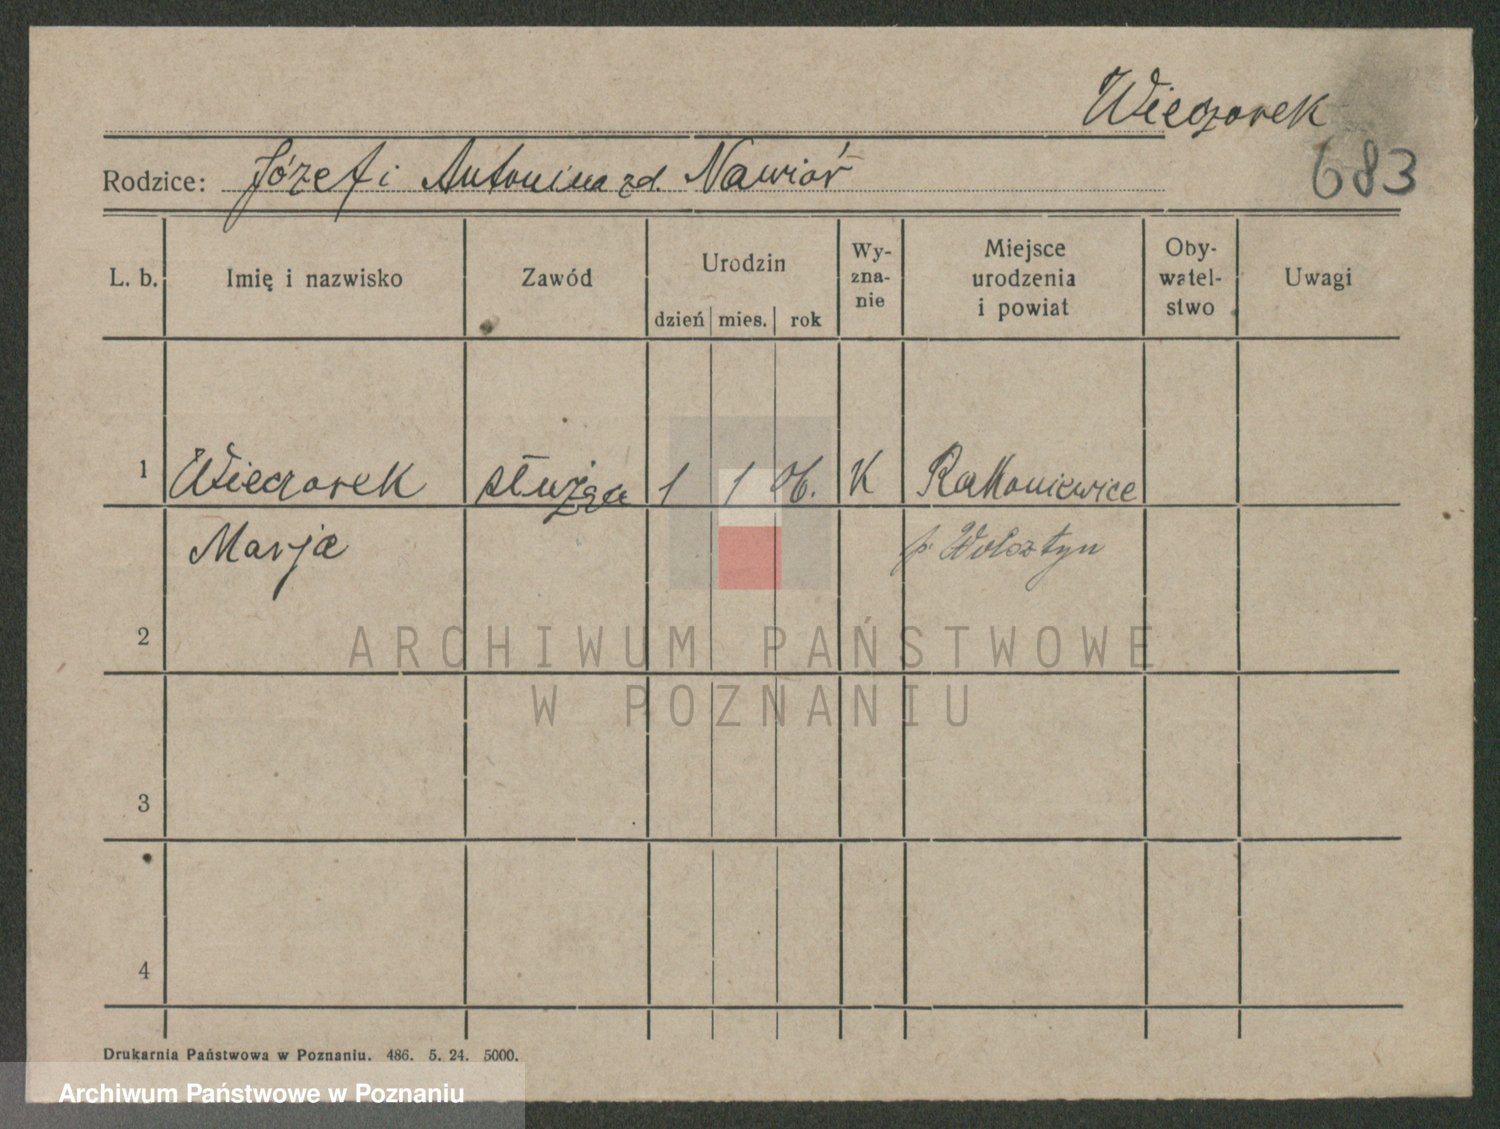 Wieczorek
Rodzice: Józef i Antonina zd. Nawior
683
L. b. Imię i nazwisko Zawód Urodzin dzień mies. rok Wy-zna-nie Miejsce urodzenia i powiat Oby-watel-stwo Uwagi
1 Wieczorek służąca 1 1 06. K Rakoniewice
Marja p. Wolsztyn
2
3
4
ARCHIWUM PAŃSTWOWE
W POZNANIU
Drukarnia Państwowa w Poznaniu. 486. 5. 24. 5000.
Archiwum Państwowe w Poznaniu